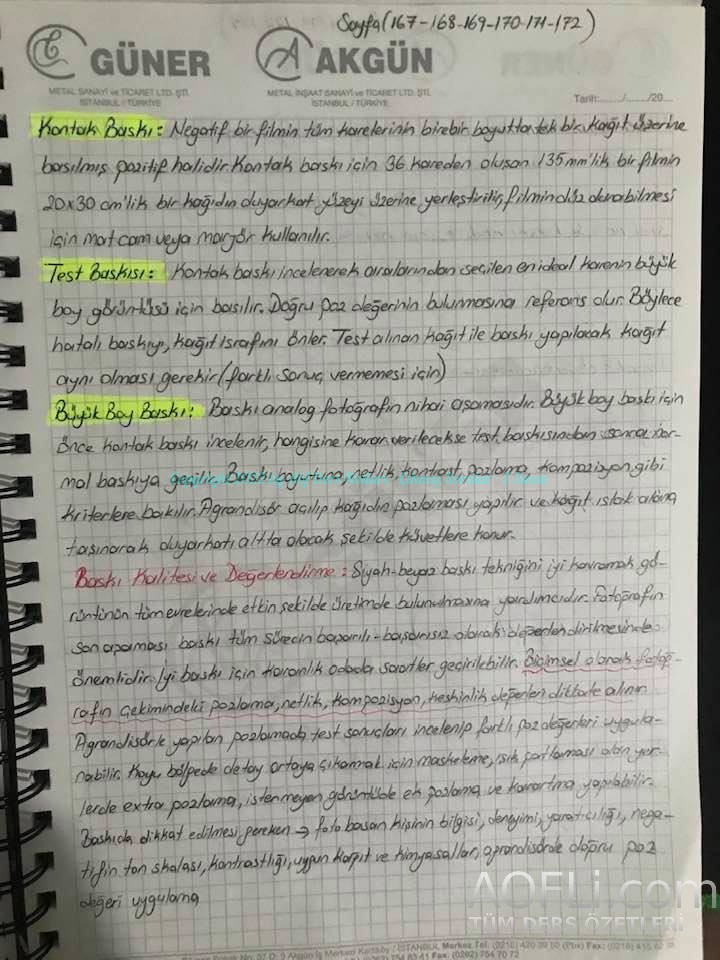 Sayfa (167-168-169-170-171-172)
GÜNER
METAL SANAYİ ve TİCARET LTD. ŞTİ.
İSTANBUL / TÜRKİYE
AKGÜN
METAL İNŞAAT SANAYİ ve TİCARET LTD. ŞTİ.
İSTANBUL / TÜRKİYE
Tarih:....../....../20....
Kontak Baskı: Negatif bir filmin tüm karelerinin birebir boyutta tek bir kağıt üzerine
basılmış pozitif halidir. Kontak baskı için 36 kareden oluşan 135mm'lik bir filmin
20x30 cm'lik bir kağıdın duyarkat yüzeyi üzerine yerleştirilir, filmin düz durabilmesi
için mat cam veya marjör kullanılır.
Test Baskısı: Kontak baskı incelenerek aralarından seçilen en ideal karenin büyük
boy görüntüsü için basılır. Doğru poz değerinin bulunmasına referans olur. Böylece
hatalı baskıyı, kağıt israfını önler. Test alınan kağıt ile baskı yapılacak kağıt
aynı olması gerekir (farklı sonuç vermemesi için)
Büyük Boy Baskı: Baskı analog fotoğrafın nihai aşamasıdır. Büyük boy baskı için
önce kontak baskı incelenir, hangisine karar verilecekse test baskısından sonra nor-
mal baskıya geçilir. Baskı boyutuna, netlik, kontrast, pozlama, kompozisyon gibi
kriterlere bakılır. Agrandisör açılıp kağıdın pozlaması yapılır ve kağıt ıslak alana
taşınarak duyarkatı altta olacak şekilde küvetlere konur.
Baskı Kalitesi ve Değerlendirme: Siyah-beyaz baskı tekniğini iyi kavramak gö-
rüntünün tüm evrelerinde etkin şekilde üretimde bulunulmasına yardımcıdır. Fotoğrafın
son aşaması baskı tüm sürecin başarılı-başarısız olarak değerlendirilmesinde
önemlidir. İyi baskı için karanlık odada saatler geçirilebilir. Biçimsel olarak fotoğ-
rafın çekimindeki pozlama, netlik, kompozisyon, keskinlik değerleri dikkate alınır
Agrandisörle yapılan pozlamada test sonuçları incelenip farklı poz değerleri uygula-
nabilir. Koyu bölgede detay ortaya çıkarmak için maskeleme, ışık patlaması olan yer-
lerde extra pozlama, istenmeyen görüntülde ek pozlama ve karartma yapılabilir.
Baskıda dikkat edilmesi gereken → foto basan kişinin bilgisi, deneyimi, yaratıcılığı, nega-
tifin ton skalası, kontrastlığı, uygun kağıt ve kimyasallar, agrandisörde doğru poz
değeri uygulama
AOFLi.com
TÜM DERS ÖZETLERİ